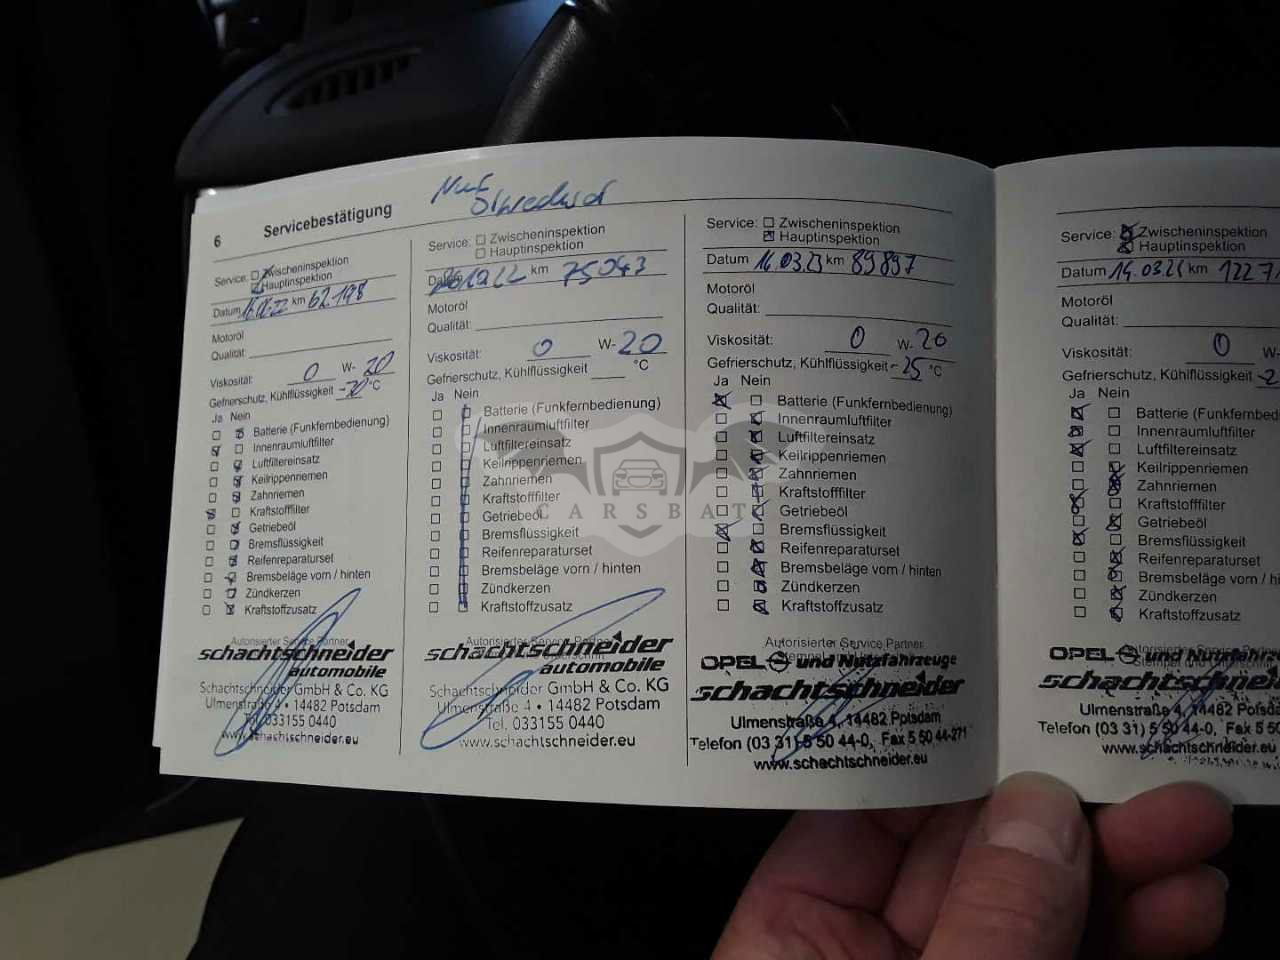 6 Servicebestätigung
Nur
Ölwechsel
Service: Zwischeninspektion
Hauptinspektion
Datum km 62.198
Motoröl
Qualität:
Viskosität: 0 W- 20
Gefrierschutz, Kühlflüssigkeit °C
Ja Nein
Batterie (Funkfernbedienung)
Innenraumluftfilter
Luftfiltereinsatz
Keilrippenriemen
Zahnriemen
Kraftstofffilter
Getriebeöl
Bremsflüssigkeit
Reifenreparaturset
Bremsbeläge vorn / hinten
Zündkerzen
Kraftstoffzusatz
Autorisierter Service Partner
schachtschneider
automobile
Schachtschneider GmbH & Co. KG
Ulmenstraße 4 • 14482 Potsdam
Tel. 033155 0440
www.schachtschneider.eu
Service: Zwischeninspektion
Hauptinspektion
Datum km 75043
Motoröl
Qualität:
Viskosität: 0 W- 20
Gefrierschutz, Kühlflüssigkeit °C
Ja Nein
Batterie (Funkfernbedienung)
Innenraumluftfilter
Luftfiltereinsatz
Keilrippenriemen
Zahnriemen
Kraftstofffilter
Getriebeöl
Bremsflüssigkeit
Reifenreparaturset
Bremsbeläge vorn / hinten
Zündkerzen
Kraftstoffzusatz
Autorisierter Service Partner
schachtschneider
automobile
Schachtschneider GmbH & Co. KG
Ulmenstraße 4 • 14482 Potsdam
Tel. 033155 0440
www.schachtschneider.eu
Service: Zwischeninspektion
Hauptinspektion
Datum 16.03.23 km 89897
Motoröl
Qualität:
Viskosität: 0 W- 20
Gefrierschutz, Kühlflüssigkeit -25 °C
Ja Nein
Batterie (Funkfernbedienung)
Innenraumluftfilter
Luftfiltereinsatz
Keilrippenriemen
Zahnriemen
Kraftstofffilter
Getriebeöl
Bremsflüssigkeit
Reifenreparaturset
Bremsbeläge vorn / hinten
Zündkerzen
Kraftstoffzusatz
Autorisierter Service Partner
OPEL und Nutzfahrzeuge
schachtschneider
Ulmenstraße 4, 14482 Potsdam
Telefon (03 31) 5 50 44-0, Fax 5 50 44-271
www.schachtschneider.eu
Service: Zwischeninspektion
Hauptinspektion
Datum km
Motoröl
Qualität:
Viskosität: 0 W-
Gefrierschutz, Kühlflüssigkeit
Ja Nein
Batterie (Funkfernbed
Innenraumluftfilter
Luftfiltereinsatz
Keilrippenriemen
Zahnriemen
Kraftstofffilter
Getriebeöl
Bremsflüssigkeit
Reifenreparaturset
Bremsbeläge vorn / hin
Zündkerzen
Kraftstoffzusatz
OPEL und Nutzfahrz
schachtschneid
Ulmenstraße 4, 14482 Potsda
Telefon (03 31) 5 50 44-0, Fax 5 50
www.schachtschneider.eu
CARSBAT